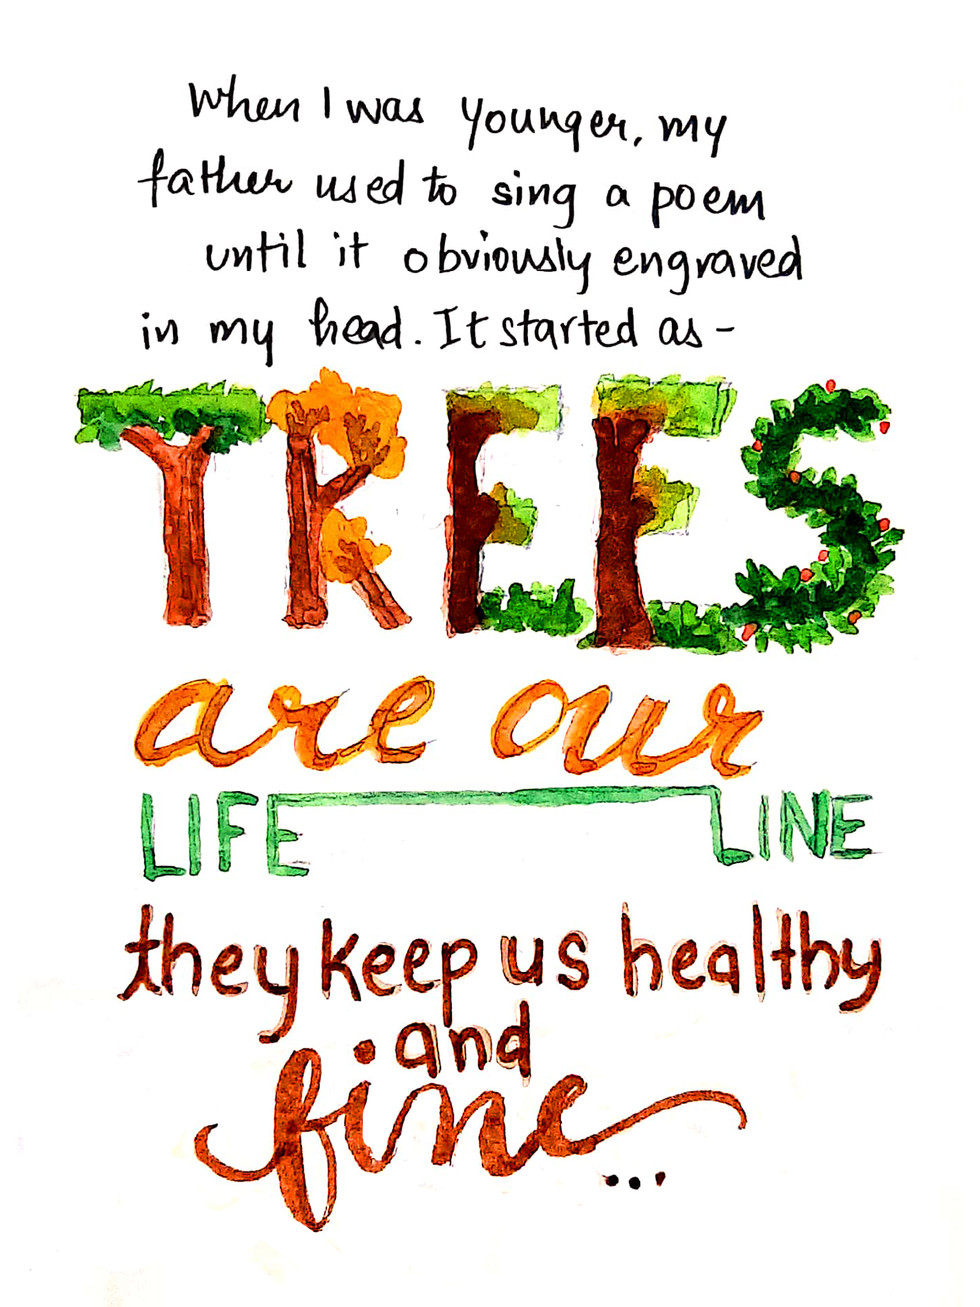 When I was younger, my
father used to sing a poem
until it obviously engraved
in my head. It started as -
TREES
are our
LIFE LINE
they keep us healthy
and
fine...